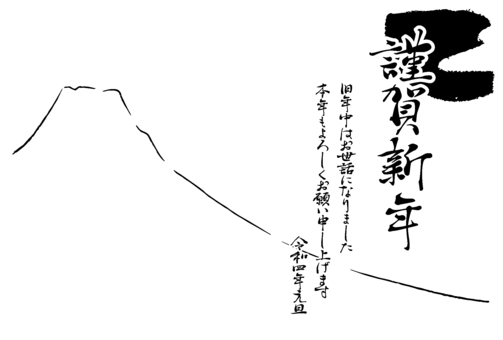 謹賀新年
旧年中はお世話になりました
本年もよろしくお願い申し上げます
令和四年元旦